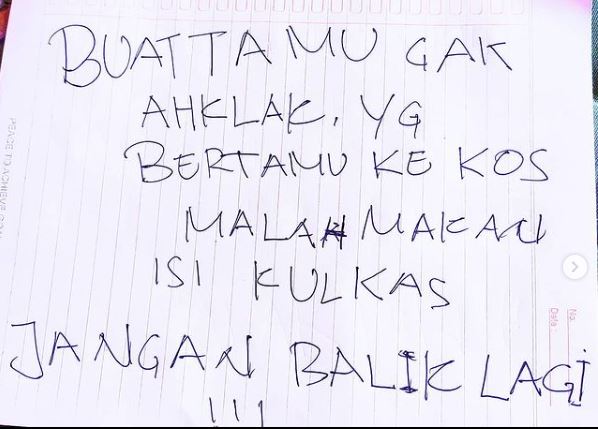 BUAT TAMU GAK
AHKLAK, YG
BERTAMU KE KOS
MALAH MAKAN
ISI KULKAS
JANGAN BALIK LAGI
!!!
PEACE TO ACHIEVE
No.
Date :